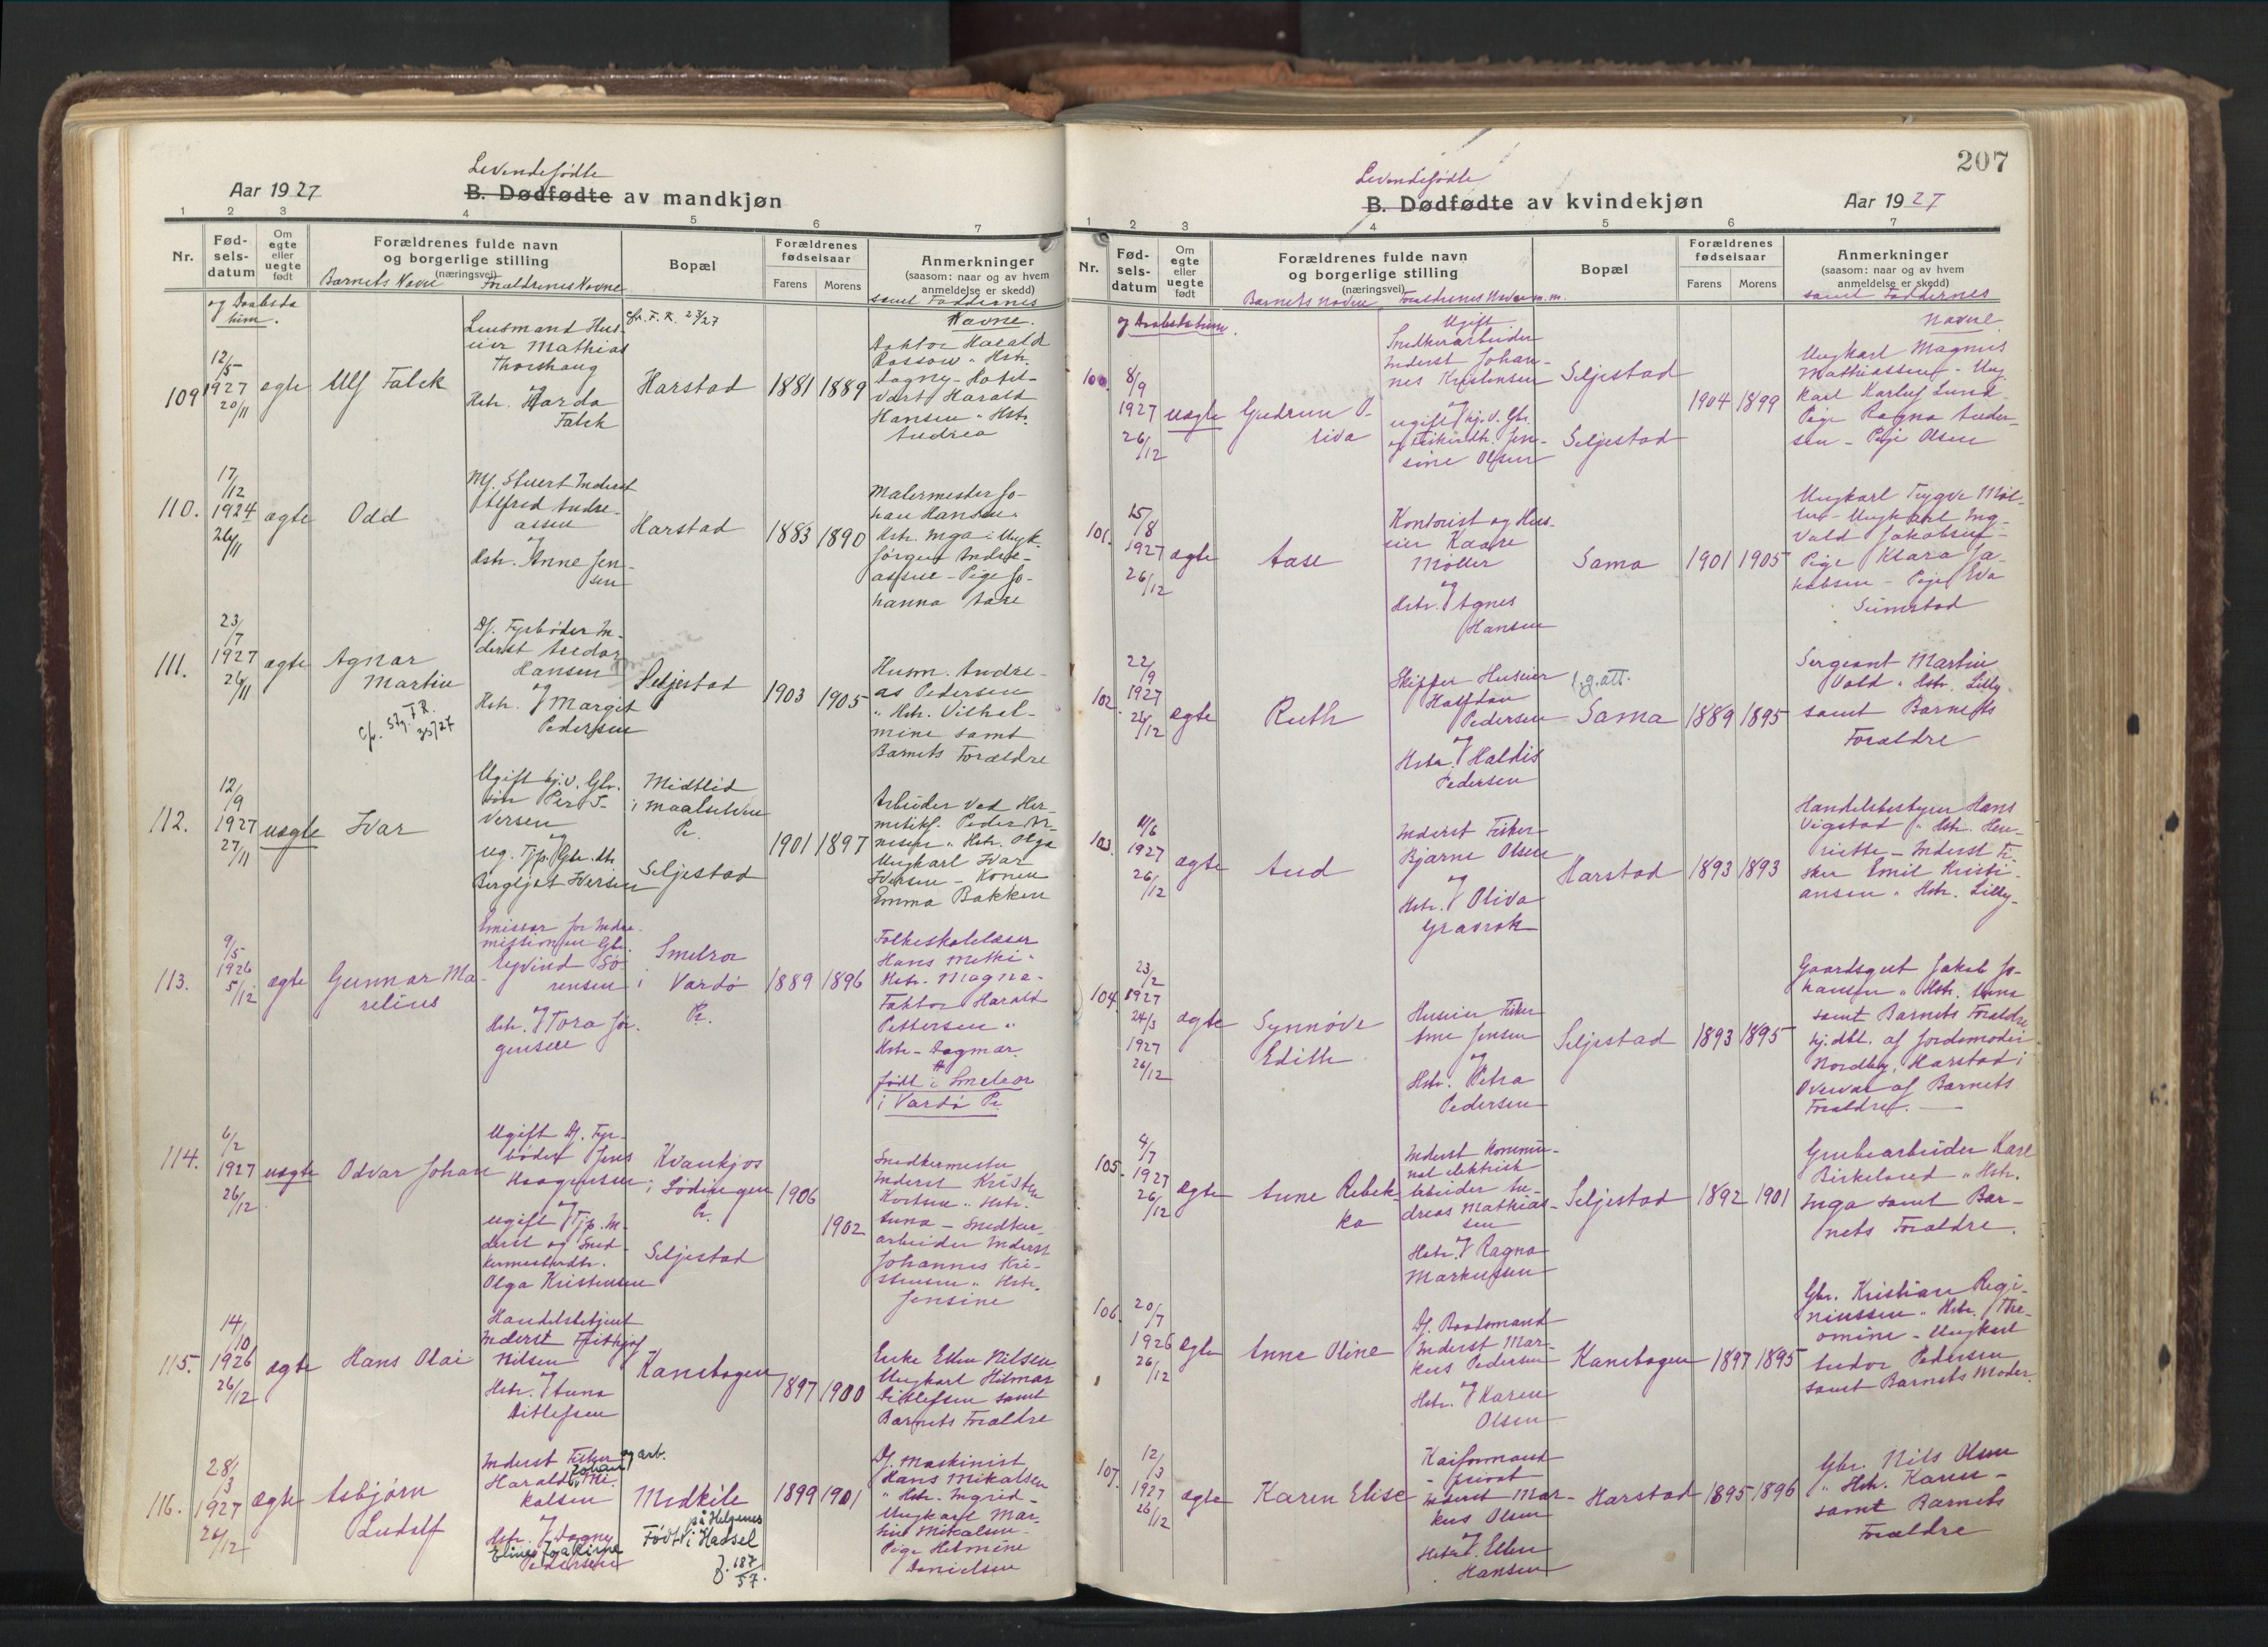 Levendefødte
Aar 1927
B. Dødfødte av mandkjøn
1 2 3 4 5 6 7
Nr.
Fød-
sels-
datum
Om
egte
eller
uegte
født
Forældrenes fulde navn
og borgerlige stilling
(næringsvei)
Barnets Navn Forældrenes Navne
Bopæl
Forældrenes
fødselsaar
Farens Morens
Anmerkninger
(saasom: naar og av hvem
anmeldelse er skedd)
samt Faddernes
Navne.
og Daabsda
tum.
109
12/5
1927
20/11
ægte
Ulf Falck
Lensmand Hus-
eier Mathias
Thorshaug
og
Hstr. Harda
Falck
cfr. F. R. 23/27
Harstad
1881 1889
Doktor Harald
Rossow " Hstr.
Dagny - Hotel-
vært Harald
Hansen " Hstr.
Andrea
110.
17/12
1924
24/11
ægte
Odd
Stuert Inderst
Alfred Andre-
assen
og
Hstr. Anne Jen-
sen
Harstad
1883 1890
Malermester Jo-
han Hansen "
Hstr. Inga - Ungk.
Jørgen Andre-
assen - Pige Jo-
hanna Aase
111.
23/7
1927
26/11
ægte
Agnar
Martin
cfr. Stg. F. R. 35/27
Df. Fyrbøder In-
derst Andor
Hansen
og
Hstr. Margit
Pedersen
Seljestad
1903 1905
Husm. Andre-
as Pedersen
" Hstr. Vilhel-
mine samt
Barnets Forældre
112.
12/9
1927
27/11
uægte
Ivar
Ugift hj.v. Gbr.
søn Per I-
versen
og
ug. Tjp. Gbr. dtr.
Bergljot Iversen
Midtlid
i Maalselven
Pr.
Seljestad
1901 1897
Arbeider ved Her-
metikf. Peder Ar-
nesen " Hstr. Olga
Ungkarl Ivar
Iversen - Konen
Emma Bakken
113.
9/5
1926
5/12
ægte
Gunnar Ma-
relius
Emissær for Indre-
missionen Gbr.
Eyvind Sø-
rensen
og
Hstr. Tora Jør-
gensen
Smelror
i Vardø
Pr.
1889 1896
Folkeskolelærer
Hans Metki "
Hstr. Magna -
Faktor Harald
Pettersen "
Hstr. Dagmar
født i Smelror
i Vardø Pr.
114.
6/2
1927
26/12
uægte
Odvar Johan
Ugift Df. Fyr-
bøder Jens
Haagensen
og
ugift Tjp. In-
derst og Sned-
kermesterdtr.
Olga Kristensen
Kvankjos
i Lødingen
Pr.
Seljestad
1906
1902
Snedkermester
Inderst Kristen
Kortsen " Hstr.
Anna - Snedker-
arbeider Inderst
Johannes Kri-
stensen " Hstr.
Jensine
115.
14/10
1926
26/12
ægte
Hans Olai
Handelsbetjent
Inderst Fritjof
Nilsen
og
Hstr. Anna
Ditlefsen
Kanebogen
1897 1900
Enke Ellen Nilsen
Ungkarl Hilmar
Ditlefsen samt
Barnets Forældre
116.
28/3
1927
26/12
ægte
Asbjørn
Ludolf
Inderst Fisker og arb.
Harald Johan Mi-
kalsen
og
Hstr. Dagny
Eline Joakime
Pedersen
Medkile
på Helgenes
Født i Hassel
J. 187/57.
1899 1901
Df. Maskinist
Hans Mikalsen
" Hstr. Ingrid -
Ungkarl Mar-
tin Mikalsen -
Pige Helmine
Danielsen
207
Levendefødte
B. Dødfødte av kvindekjøn
Aar 1927
1 2 3 4 5 6 7
Nr.
Fød-
sels-
datum
Om
egte
eller
uegte
født
Forældrenes fulde navn
og borgerlige stilling
(næringsvei)
Barnets navn Forældrenes Navne m.m.
Bopæl
Forældrenes
fødselsaar
Farens Morens
Anmerkninger
(saasom: naar og av hvem
anmeldelse er skedd)
samt Faddernes
Navne
og Daabsdatum.
100.
8/9
1927
26/12
uægte
Gudrun O-
liva
Ugift
Snedkerarbeider
Inderst Johan-
nes Kristensen
og
ugift hj.v. Gbr.
og Fiskerdtr. Jen-
sine Olsen
Seljestad
Seljestad
1904 1899
Ungkarl Magnus
Mathiassen - Ung-
karl Karluf Lund -
Pige Ragna Ander-
sen - Pige Olsen
101.
15/8
1927
26/12
ægte
Aase
Kontorist og Hus-
eier Kaare
Møller
og
Hstr. Agnes
Hansen
Sama
1901 1905
Ungkarl Trygve Møl-
ler - Ungkarl Ing-
vald Jakobsen -
Pige Klara Ja-
kobsen - Pige Eva
Simestad
102.
22/9
1927
26/12
ægte
Ruth
Skipper Huseier
Halfdan
Pedersen
og
Hstr. Haldis
Pedersen
f. g. att.
Sama
1889 1895
Sergeant Martin
Vold " Hstr. Lilly
samt Barnets
Forældre
103.
11/6
1927
26/12
ægte
Aud
Inderst Fisker
Bjarne Olsen
og
Hstr. Oliva
Gravrok
Harstad
1893 1893
Handelsbestyrer Hans
Vigstad " Hstr. Hen-
riette - Inderst Fi-
sker Emil Kristi-
ansen " Hstr. Lilly -
104.
23/2
1927
24/3
1927
26/12
ægte
Synnøve
Edith
Huseier Fisker
Arne Jensen
og
Hstr. Petra
Pedersen
Seljestad
1893 1895
Gaardsgut Jakob Jo-
hansen " Hstr. Anna
samt Barnets Forældre
hj.dbt. af Jordemoder
Nordby, Harstad i
Overvær af Barnets
Forældre.
105.
4/7
1927
26/12
ægte
Anne Rebek-
ka
Inderst Kommu-
nal elektrisk
Arbeider An-
dreas Mathias-
sen
Hstr. Ragna
Markussen
Seljestad
1892 1901
Grubearbeider Karl
Birkelund " Hstr.
Inga samt Bar-
nets Forældre.
106.
20/7
1926
26/12
ægte
Anne Oline
Df. Baatsmand
Inderst Mar-
kus Pedersen
og
Hstr. Karen
Olsen
Kanebogen
1897 1895
Gbr. Kristian Regi-
niussen " Hstr. The-
omine - Ungkarl
Andor Pedersen
samt Barnets Moder.
107.
12/3
1927
26/12
ægte
Karen Elise
Kaiformand
Inderst Mar-
kus Olsen
og
Hstr. Ellen
Hansen
Harstad
1895 1896
Gbr. Nils Olsen
" Hstr. Karen -
samt Barnets
Forældre